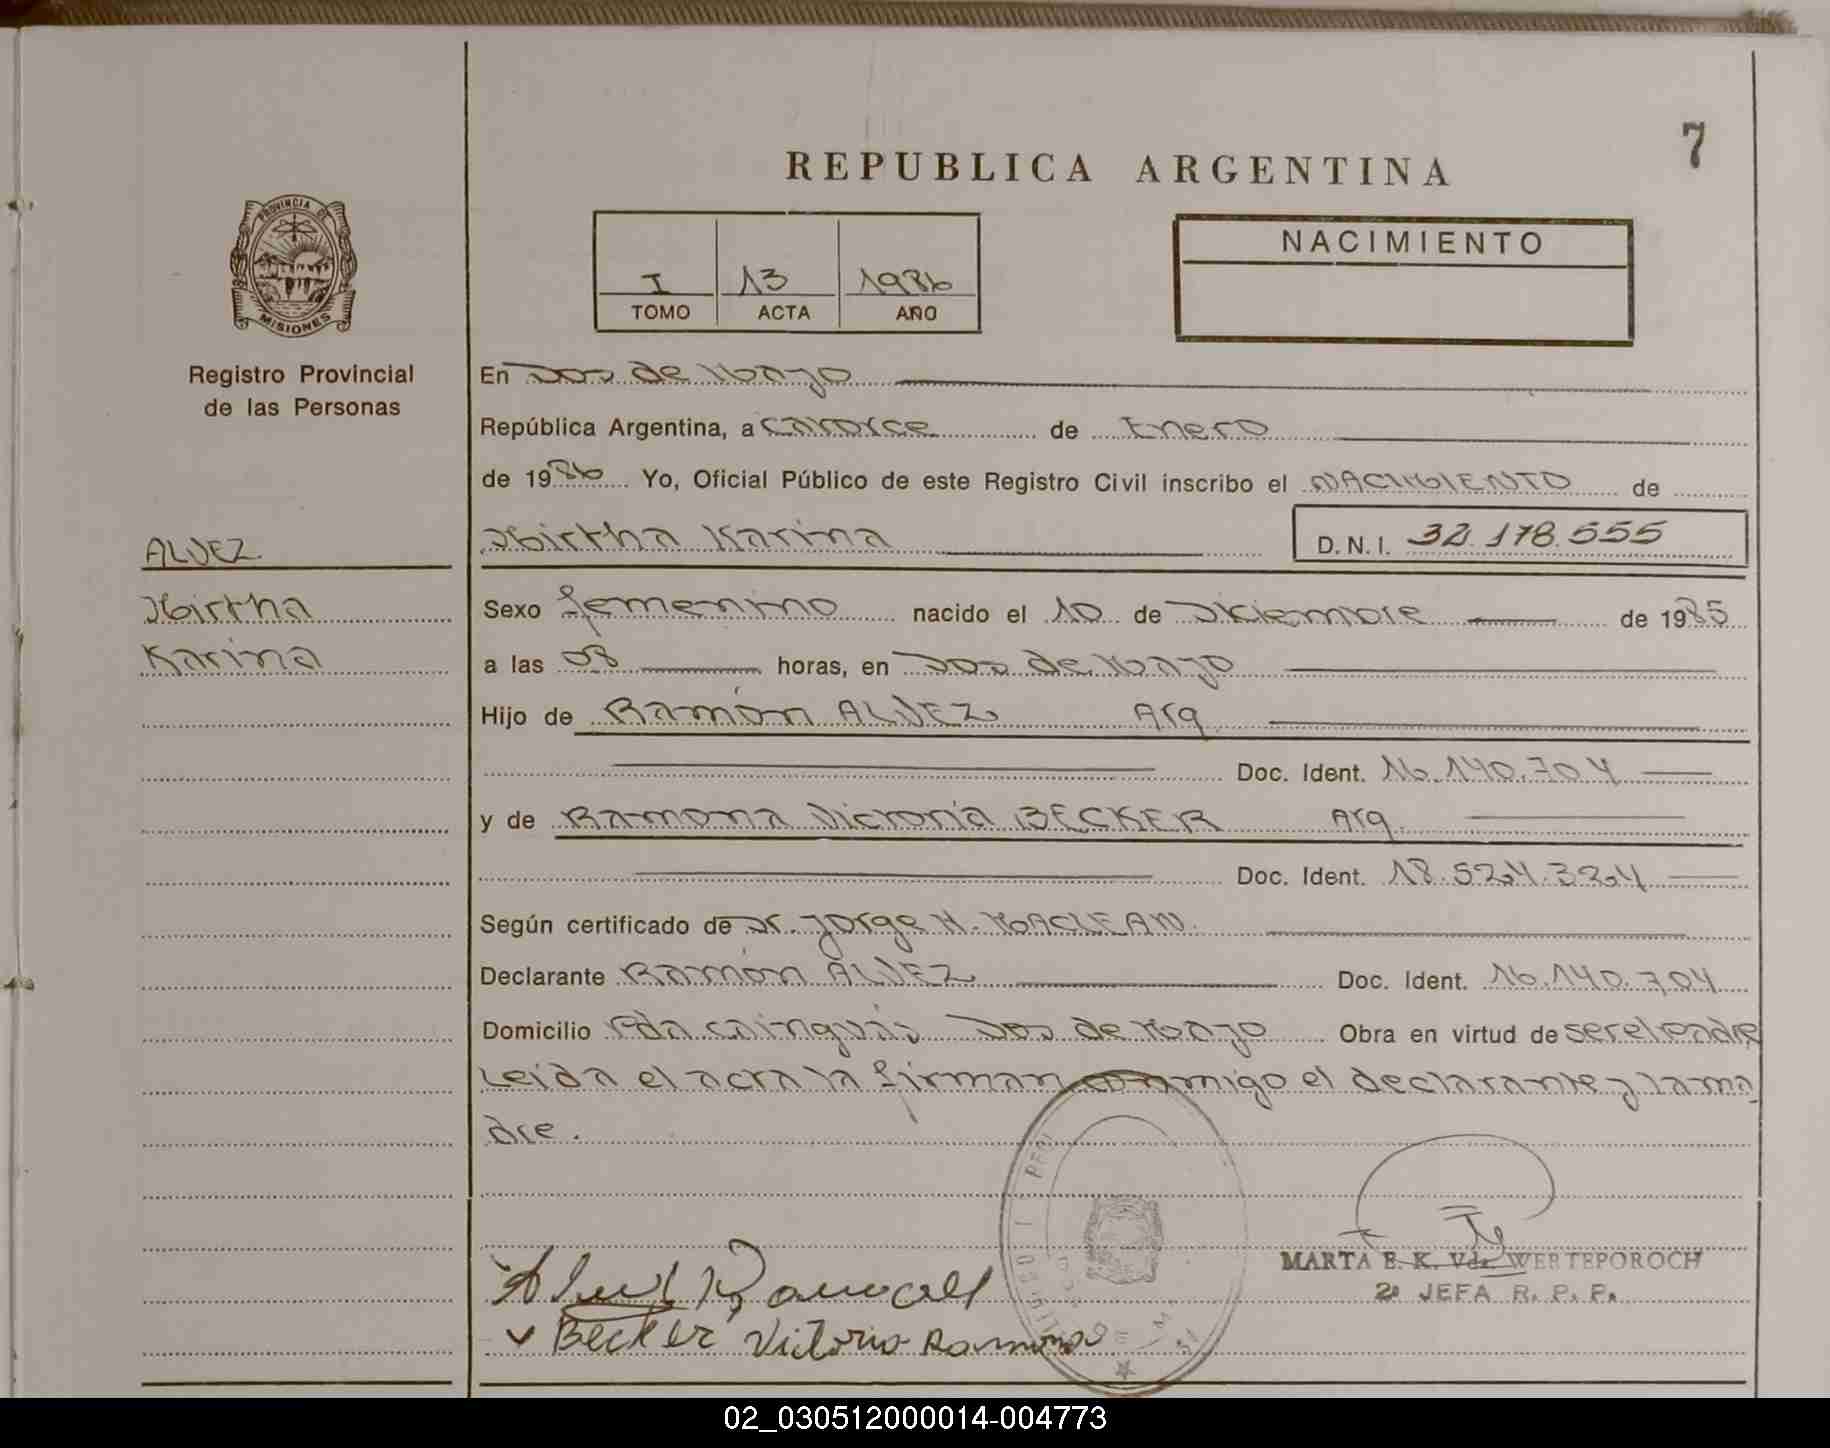 7
REPUBLICA ARGENTINA
PROVINCIA DE
MISIONES
Registro Provincial
de las Personas
I 13 1986
TOMO ACTA AÑO
NACIMIENTO
En Dos de Mayo
República Argentina, a catorce de Enero
de 1986 Yo, Oficial Público de este Registro Civil inscribo el NACIMIENTO de
ALVEZ
Mirtha Karina D.N.I. 32.178.555
Mirtha
Karina
Sexo femenino nacido el 10 de Diciembre de 1985
a las 08 horas, en Dos de Mayo
Hijo de Ramón ALVEZ Arg
Doc. Ident. 16.140.704
y de Ramona Victoria BECKER Arg.
Doc. Ident. 18.524.324
Según certificado de Dr. Jorge H. MACLEAN.
Declarante Ramón ALVEZ Doc. Ident. 16.140.704
Domicilio Pda cainguás Dos de Mayo Obra en virtud de ser el padre
Leida el acta la firman conmigo el declarante y la ma
dre.
MARTA E. K. Vda. WERTEPOROCH
2º JEFA R. P. P.
Becker Victoria Ramona
02_030512000014-004773